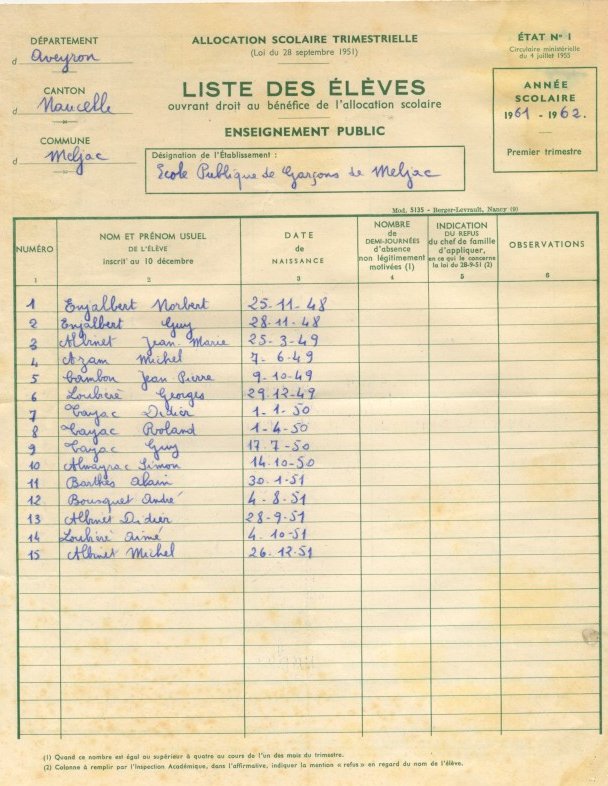 DÉPARTEMENT
d Aveyron
CANTON
d Naucelle
COMMUNE
d Meljac
ALLOCATION SCOLAIRE TRIMESTRIELLE
(Loi du 28 septembre 1951)
LISTE DES ÉLÈVES
ouvrant droit au bénéfice de l'allocation scolaire
ENSEIGNEMENT PUBLIC
Désignation de l'Établissement :
Ecole Publique de Garçons de Meljac
ÉTAT No 1
Circulaire ministérielle
du 4 juillet 1955
ANNÉE
SCOLAIRE
1961 - 1962.
Premier trimestre
Mod. 5135 - Berger-Levrault, Nancy (9)
NUMÉRO
1
NOM ET PRÉNOM USUEL
DE L'ÉLÈVE
inscrit au 10 décembre
2
DATE
de
NAISSANCE
3
NOMBRE
de
DEMI-JOURNÉES
d'absence
non légitimement
motivées (1)
4
INDICATION
DU REFUS
du chef de famille
d'appliquer,
en ce qui le concerne
la loi du 28-9-51 (2)
5
OBSERVATIONS
6
1 Enjalbert Norbert 25-11-48
2 Enjalbert Guy 28-11-48
3 Albinet Jean-Marie 25-3-49
4 Azam Michel 7-6-49
5 Cambon Jean Pierre 9-10-49
6 Loubière Georges 29-12-49
7 Cayzac Didier 1-1-50
8 Cayzac Roland 1-4-50
9 Cayzac Guy 17-7-50
10 Almayrac Simon 14-10-50
11 Barthes Alain 30-1-51
12 Bousquet André 4-8-51
13 Albinet Didier 28-9-51
14 Loubière Aimé 4-10-51
15 Albinet Michel 26-12-51
(1) Quand ce nombre est égal ou supérieur à quatre au cours de l'un des mois du trimestre.
(2) Colonne à remplir par l'Inspection Académique, dans l'affirmative, indiquer la mention « refus » en regard du nom de l'élève.